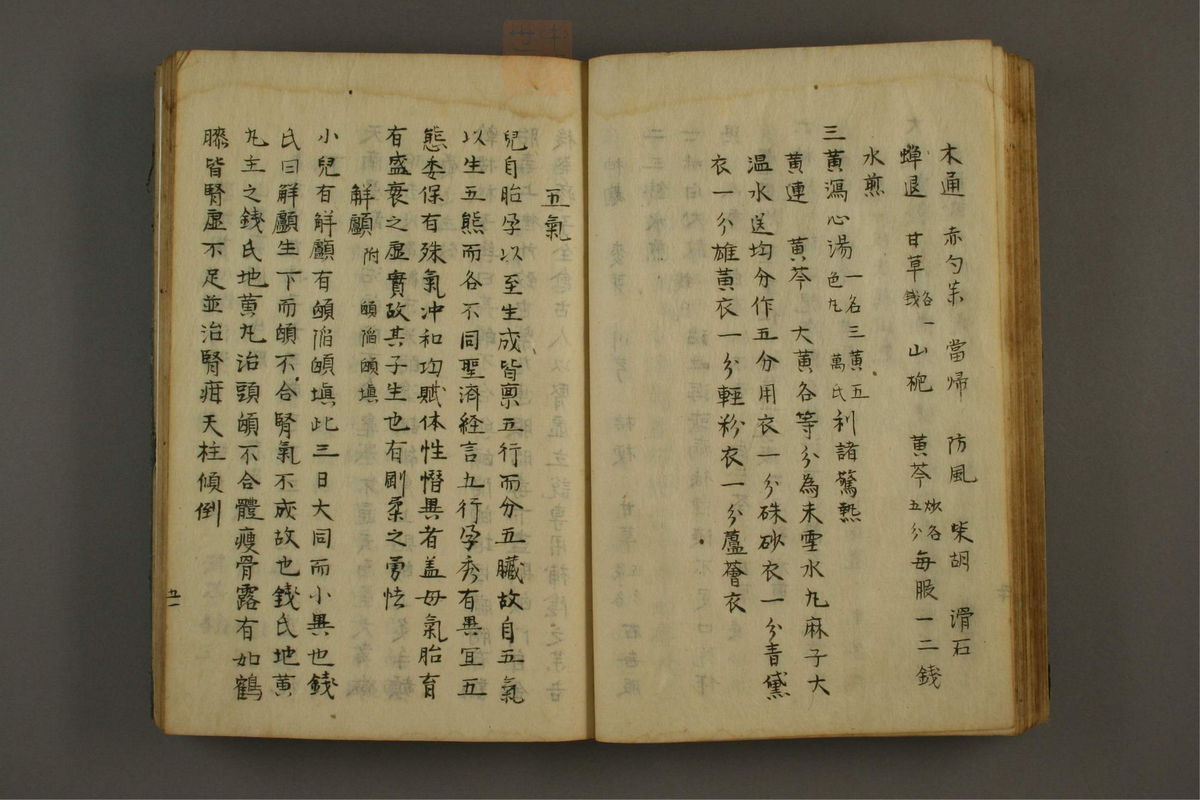 木通 赤勺藥 當帰 防風 柴胡 滑石
蟬退 甘草各一錢 山梔 黃芩炒各五分 每服一二錢
水煎
三黃瀉心湯一名三黃五色丸 萬氏 利諸驚熱
黃連 黃芩 大黃各等分為末雪水丸麻子大
温水送均分作五分用衣一分硃砂衣一分青黛
衣一分雄黃衣一分輕粉衣一分蘆薈衣
五氣
兒自胎孕以至生成皆禀五行而分五臟故自五氣
以生五態而各不同聖濟経言五行孕秀有異宜五
態委保有殊氣冲和均賦体性憯異者盖母氣胎育
有盛衰之虛實故其子生也有剛柔之勇怯
觧顱 附 䪿陷䪿塡
小兒有觧顱有䪿陷䪿塡此三日大同而小異也錢
氏曰觧顱生下而䪿不合腎氣不成故也錢氏地黃
丸主之錢氏地黃丸治頭䪿不合體瘦骨露有如鶴
膝皆腎虛不足並治腎疳天柱傾倒
五一